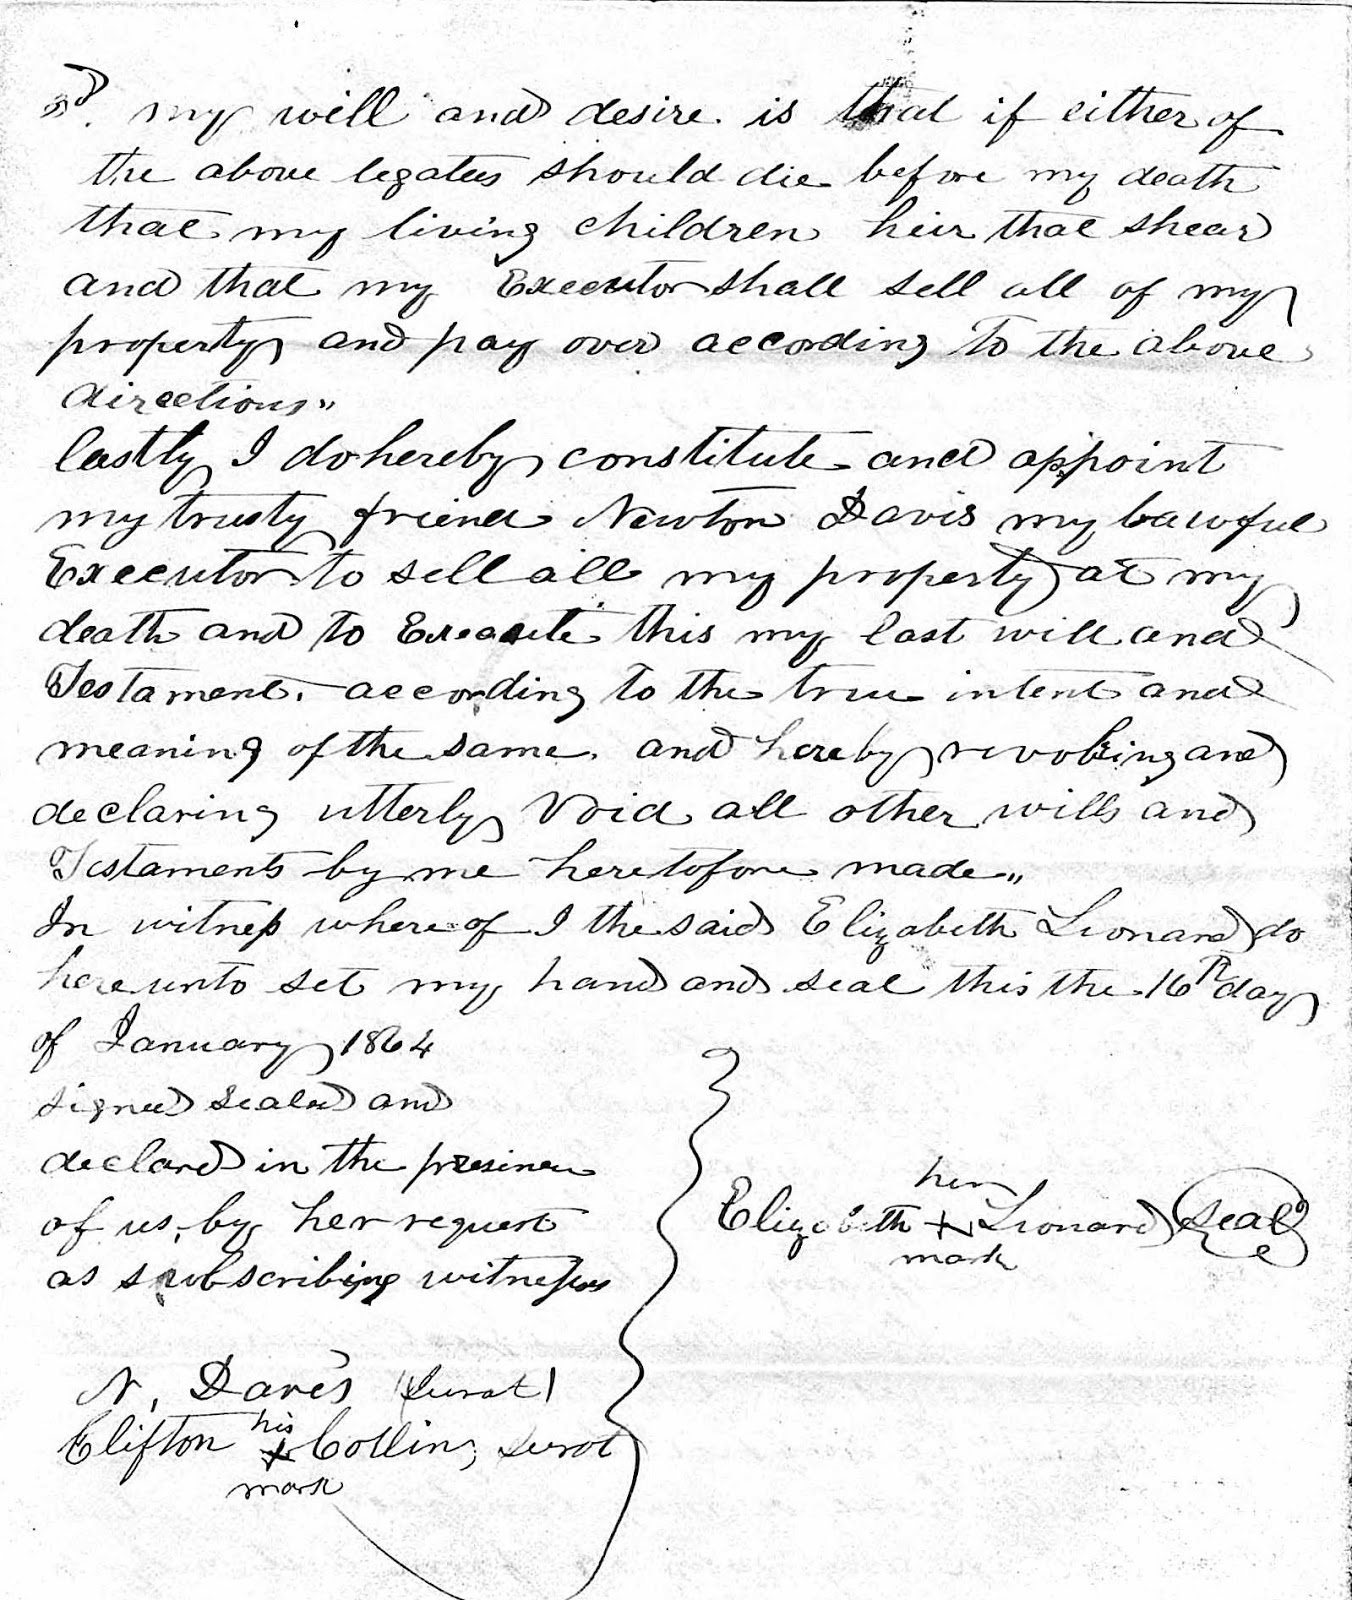 3d. my will and desire is that if either of
the above legatees should die before my death
that my living children heir that shear
and that my Executor shall sell all of my
property and pay over according to the above
directions"
lastly I do hereby constitute and appoint
my trusty friend Newton Davis my lawful
Executor to sell all my property at my
death and to Execute this my last will and
Testament. according to the true intent and
meaning of the same. and hereby revoking and
declaring utterly void all other wills and
Testaments by me heretofore made"
In witness where of I the said Elizabeth Leonard do
here unto set my hand and seal this the 16th day
of January 1864
signed sealed and
declared in the presence
of us, by her request
as subscribing witnesses
her
Elizabeth X Leonard seal
mark
N. Davis (Jurat)
his
Clifton X Collins, Jurat
mark